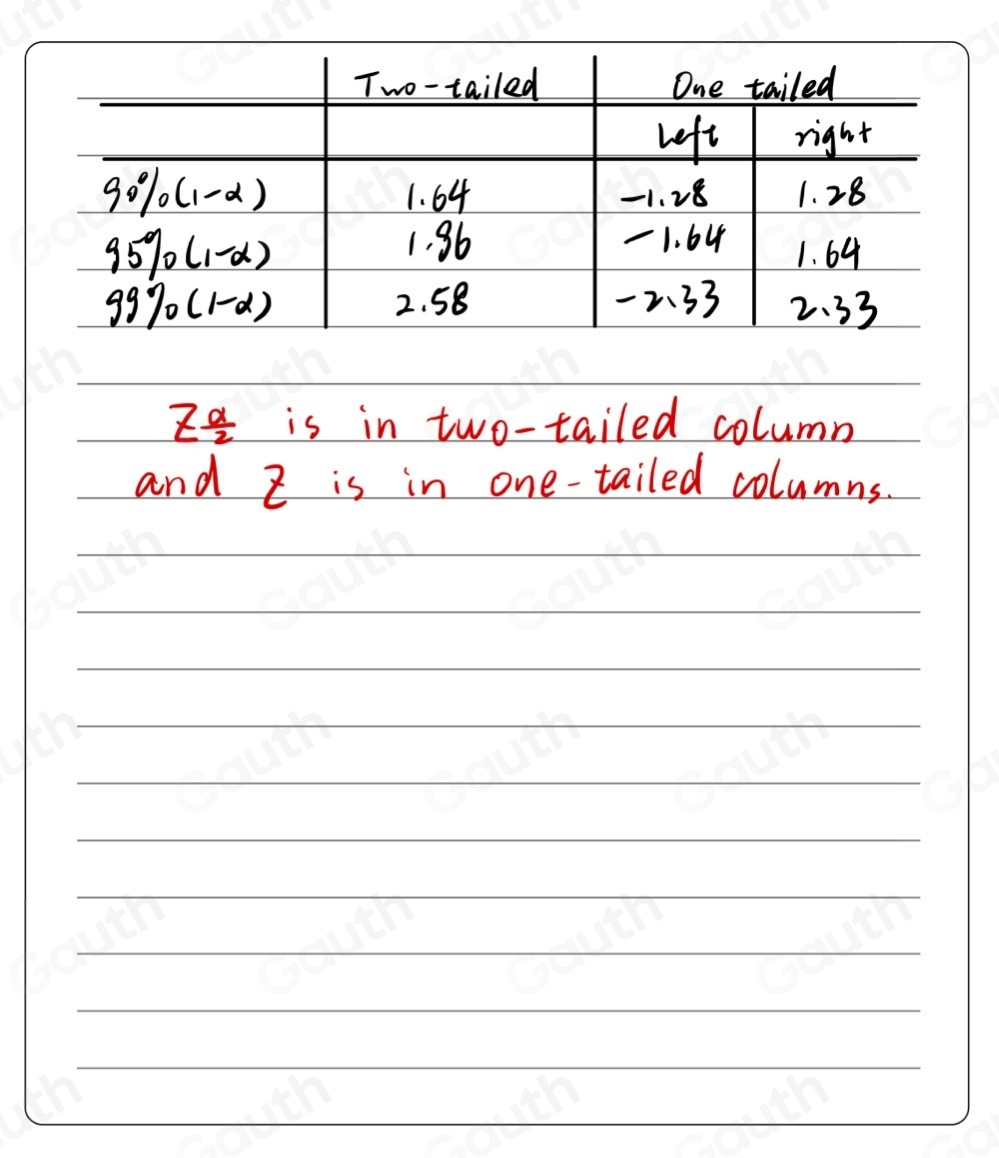 Two-tailed One tailed
Left right
90% (1-α) 1.64 -1.28 1.28
95% (1-α) 1.96 -1.64 1.64
99% (1-α) 2.58 -2.33 2.33
Zα/2 is in two-tailed column
and Z is in one-tailed columns.
Gauth